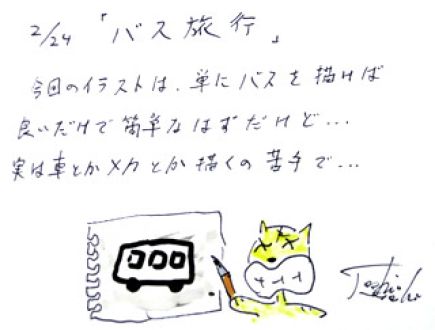 2/24 「バス旅行」
今回のイラストは、単にバスを描けば
良いだけで簡単なはずだけど...
実は車とかメカとか描くの苦手で...